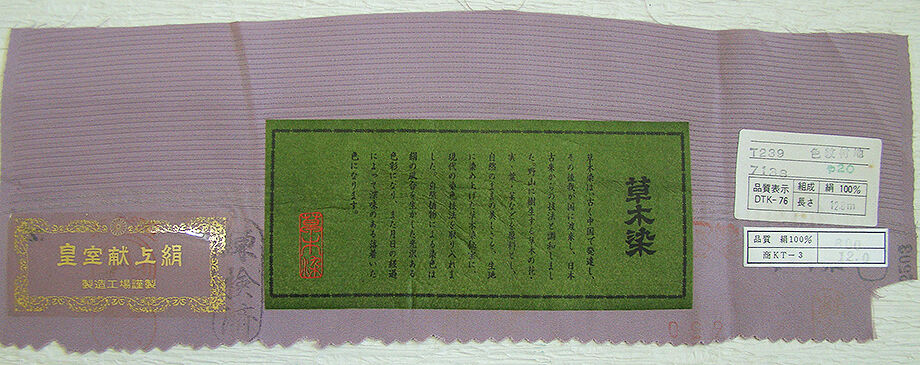 皇室献上絹
製造工場謹製
草木染
草木染は遠く中国で発達し、
その後我が国に渡来し、日本
古来からの技法と調和しまし
た。野山に樹生する草木の枝、
実、葉、などを原料とし、
自然のままの美しさを、生地
に染め上げた草木染の技法に
現代の染色技法を取り入れま
した。自然植物による染色は
絹の風合を生かした光沢のある
色彩になり、また月日の経過
によって深味のある落着いた
色になります。
草木染
T239 色紋付地
7139 520
品質表示 組成 絹 100%
DTK-76 長さ 12.8m
品質 絹100%
商KT-3 12.0